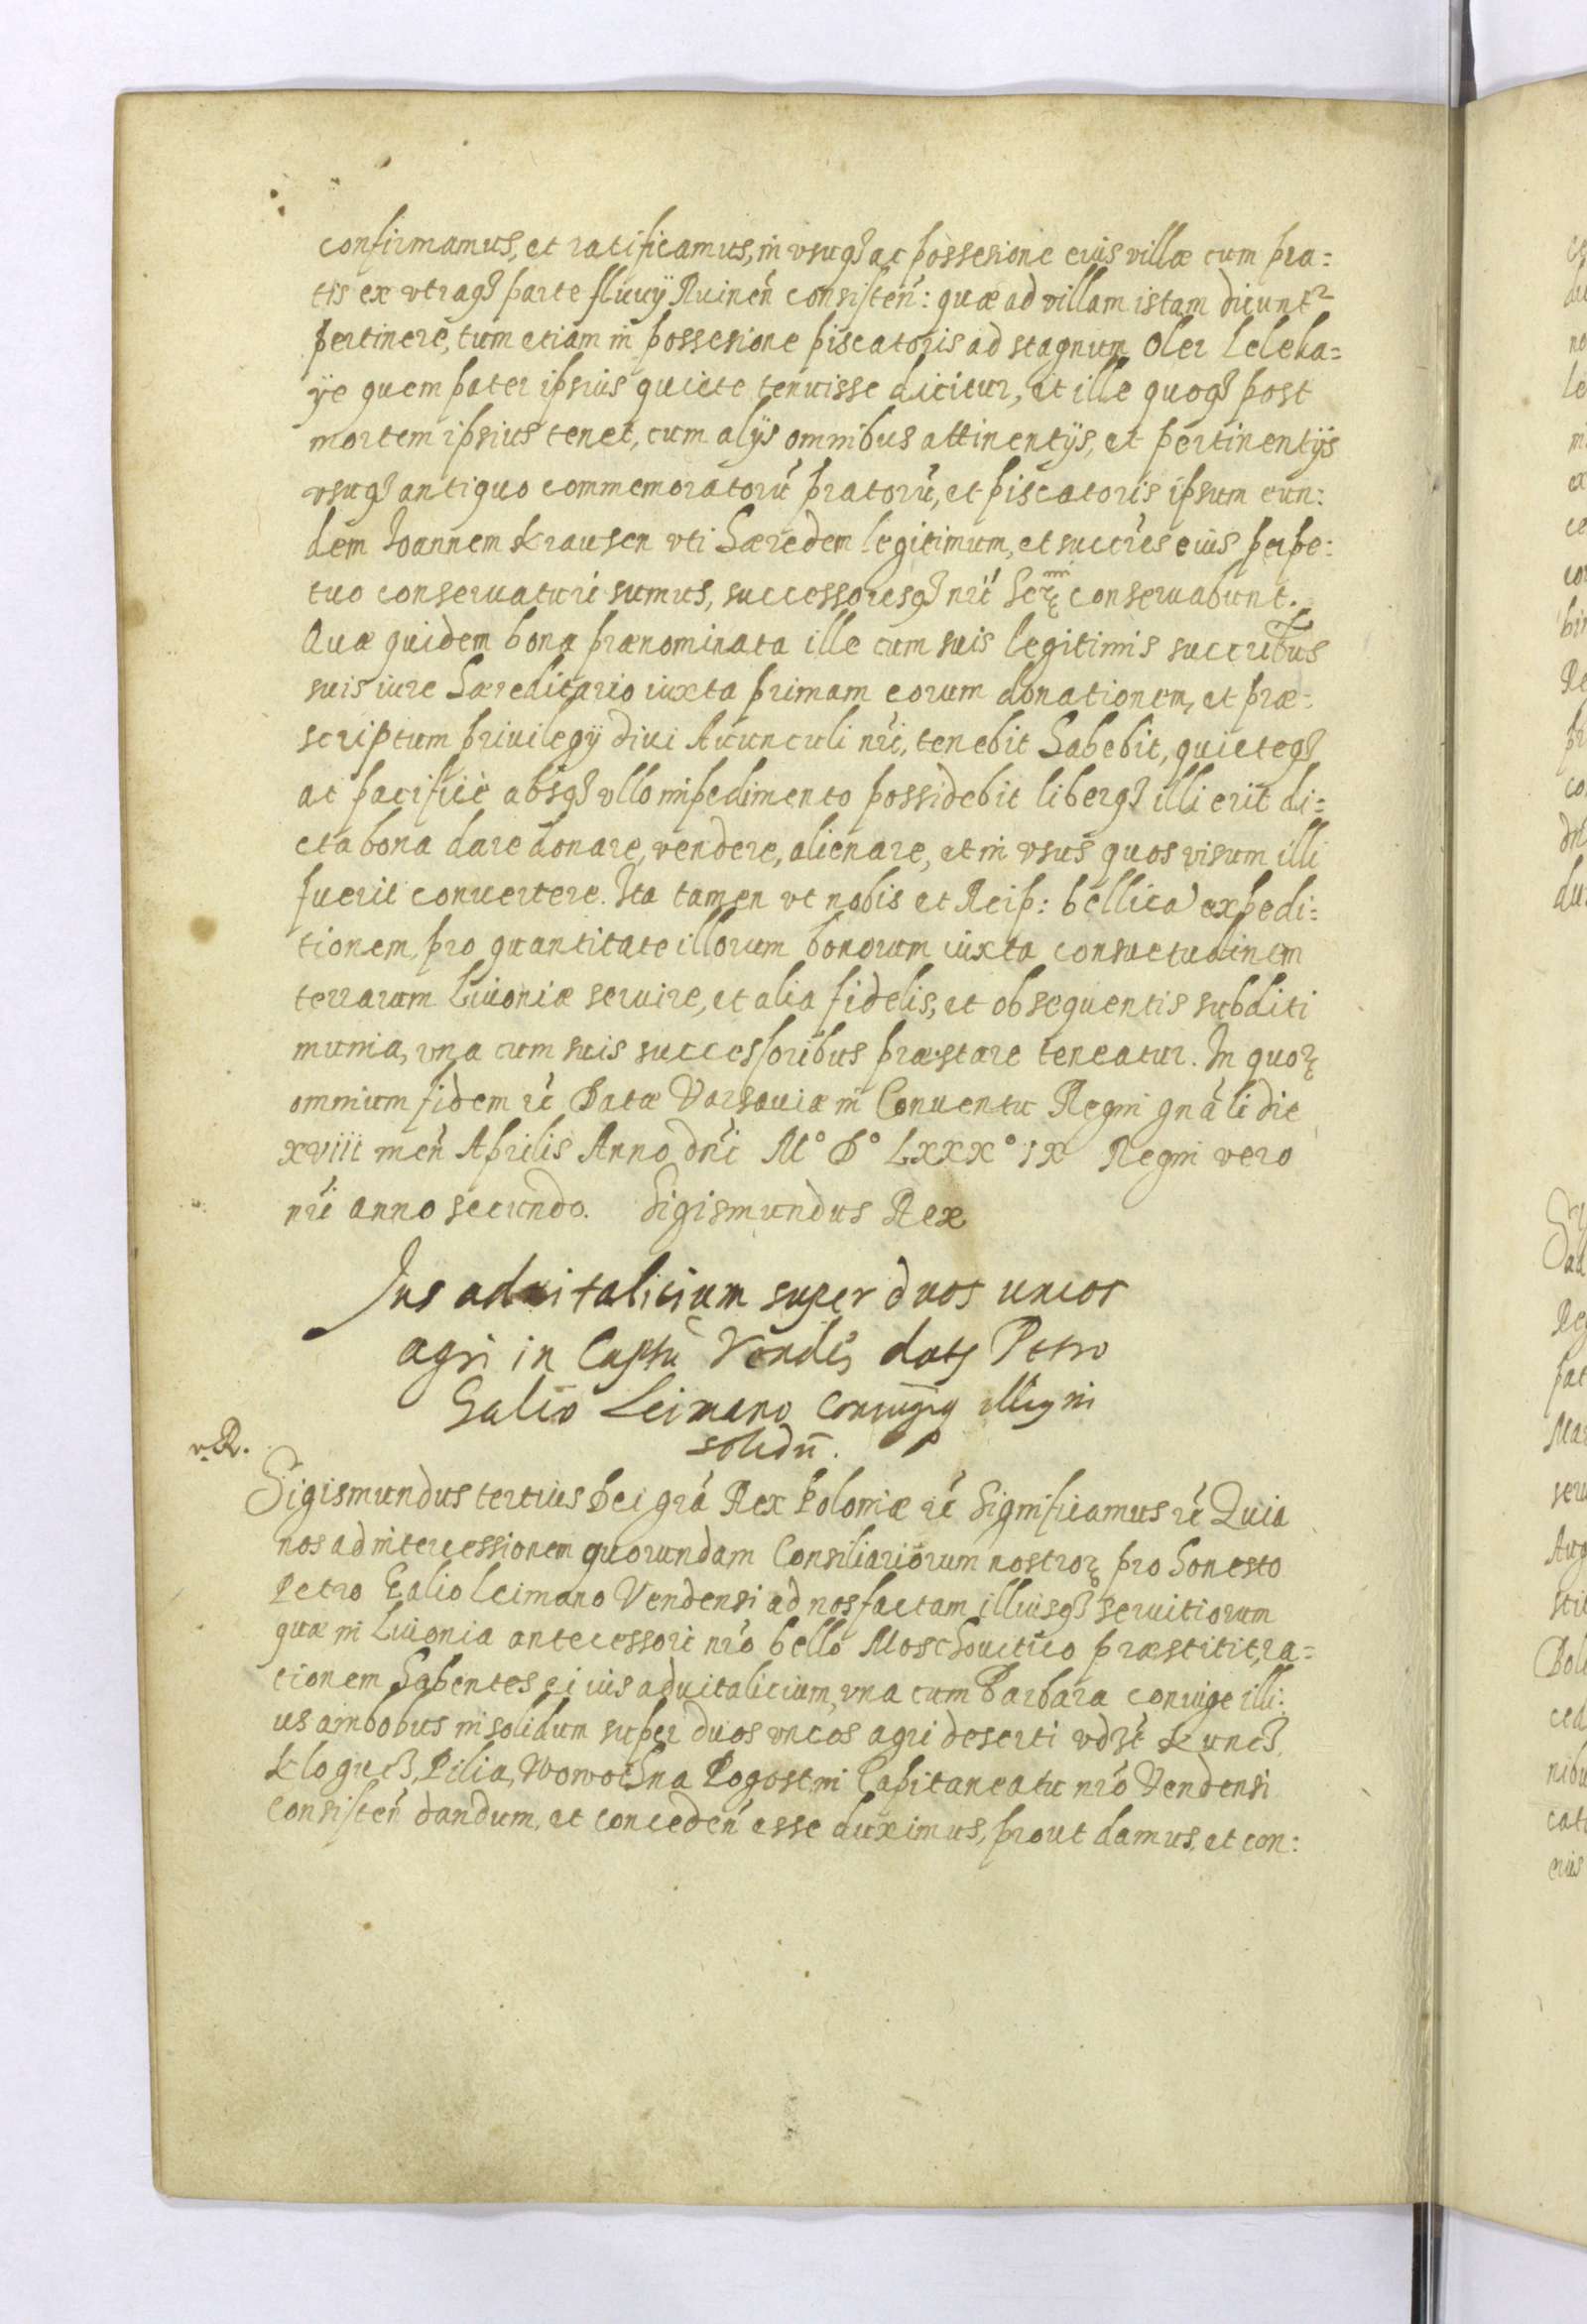 confirmamus, et ratificamus, in vsuq₃ ac possesione eius villæ cum pra=
tis ex vtraq₃ parte fluuÿ Ruineń consisteń: quæ ad villam istam dicunt²
pertinere, tum etiam in possesione piscatoris ad stagnum Oler Leleka=
ÿe quem pater ipsius quiete tenuisse dicitur, et ille quoq₃ post
mortem ipsius tenet, cum alÿs omnibus attinentÿs, et pertinentÿs
vsuq₃ antiquo commemoratorú pratorú, et piscatoris ipsum eun:
dem Ioannem Krausen vti hæredem legitimum, et succres eius perpe:
tuo conseruaturi sumus, successoresq₃ nrí Serꝫ conseruabunt.
Quæ quidem bona prænominata ille cum suis legitimis succribus
suis iure hæreditario iuxta primam eorum donationem, et præ=
scriptum priuilegÿ diui Auunculi nrí, tenebit habebit, quieteq₃
ac pacificè absq₃ vllo impedimento possidebit liberq₃ illi erit di=
cta bona dare donare, vendere, alienare, et in vsus quos visum illi
fuerit conuertere. Ita tamen vt nobis et Reip: bellica expedi=
tionem, pro quantitate illorum bonorum iuxta consuetudinem
terrarum Liuoniæ seruire, et alia fidelis, et obsequentis subditi
munia, vna cum suis successoribus præstare teneatur. In quoꝝ
omnium fidem rć Datæ Varsauiæ in Conuentu Regni gnáli die
xviii meń Aprilis Anno dńi M° D° LXXX° IX Regni vero
nrí anno secundo. Sigismundus Rex
Jus aduitalicium super duos uncos
agri in Captu Vendeń datq Petro
Galio Leimano Coniugiq illiq in
solidū.
Sigismundus tertius Dei grá Rex Poloniæ rć Significamus rć Quia
nos ad intercessionem quorundam Consiliariorum nostroꝝ pro honesto
Petro Galio Leimano Vendensi ad nos factam illiusq₃ seruitiorum
quæ in Liuonia antecessori nró bello Moschouitico præstitit, ra=
tionem habentes ei ius aduitalicium, vna cum Barbara coniuge illi:
us ambobus in solidum super duos vncos agri deserti vdzt Kuncz,
Klogucz, Pilia, Wowochna Pogost in Capitaneatu nró Vendensi
consisteń dandum, et concedeń esse duximus, prout damus, et con: